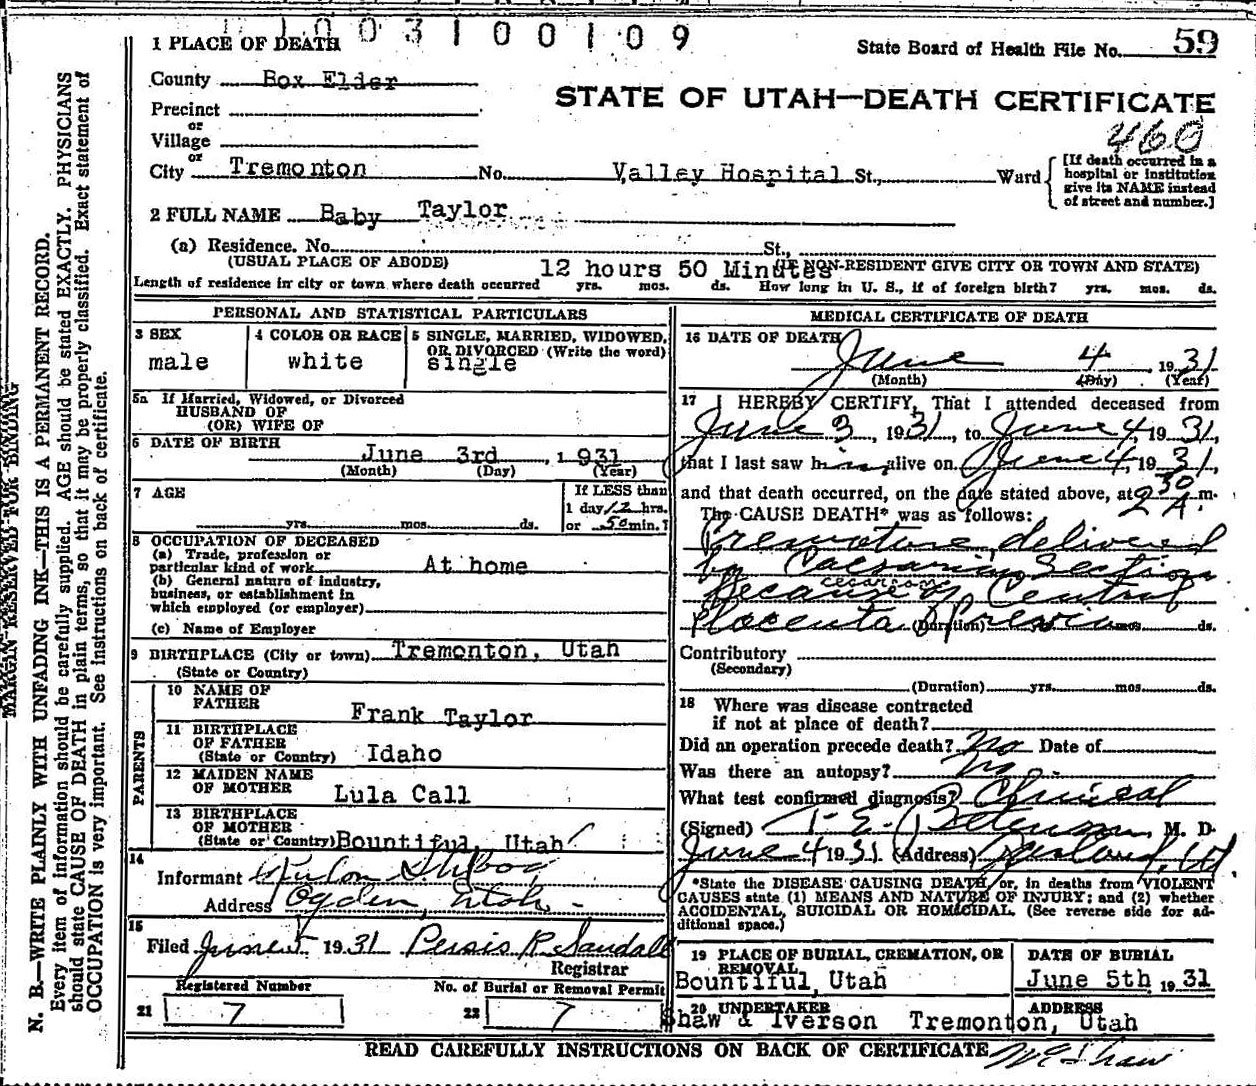 1003100109
1 PLACE OF DEATH
State Board of Health File No. 59
County Box Elder
STATE OF UTAH—DEATH CERTIFICATE
Precinct
or
Village
460
or
City Tremonton No. Valley Hospital St., Ward
[If death occurred in a
hospital or institution
give its NAME instead
of street and number.]
2 FULL NAME Baby Taylor
(a) Residence. No. St.,
(USUAL PLACE OF ABODE) (IF NON-RESIDENT GIVE CITY OR TOWN AND STATE)
12 hours 50 Minutes
Length of residence in city or town where death occurred yrs. mos. ds. How long in U. S., if of foreign birth? yrs. mos. ds.
PERSONAL AND STATISTICAL PARTICULARS
3 SEX
male
4 COLOR OR RACE
white
5 SINGLE, MARRIED, WIDOWED,
OR DIVORCED (Write the word)
single
5a If Married, Widowed, or Divorced
HUSBAND OF
(OR) WIFE OF
6 DATE OF BIRTH
June 3rd, 1931
(Month) (Day) (Year)
7 AGE
yrs. mos. ds.
If LESS than
1 day 12 hrs.
or 50 min.?
8 OCCUPATION OF DECEASED
(a) Trade, profession or
particular kind of work At home
(b) General nature of industry,
business, or establishment in
which employed (or employer)
(c) Name of Employer
9 BIRTHPLACE (City or town) Tremonton, Utah
(State or Country)
PARENTS
10 NAME OF
FATHER
Frank Taylor
11 BIRTHPLACE
OF FATHER
(State or Country) Idaho
12 MAIDEN NAME
OF MOTHER
Lula Call
13 BIRTHPLACE
OF MOTHER
(State or Country) Bountiful, Utah
14
Informant
Address Ogden, Utah
15
Filed June 5 1931 Persis R. Sandall
Registrar
Registered Number
21 7
No. of Burial or Removal Permit
22 7
MEDICAL CERTIFICATE OF DEATH
16 DATE OF DEATH
June 4, 1931
(Month) (Day) (Year)
17 I HEREBY CERTIFY, That I attended deceased from
June 3, 1931, to June 4, 1931,
that I last saw him alive on June 4, 1931,
and that death occurred, on the date stated above, at 2 30 A. m.
The CAUSE DEATH* was as follows:
Premature, delivered
by Caesarian Section
cesarian
because of Central
Placenta Previa
(Duration) mos. ds.
Contributory
(Secondary)
(Duration) yrs. mos. ds.
18 Where was disease contracted
if not at place of death?
Did an operation precede death? No Date of
Was there an autopsy? No
What test confirmed diagnosis? Clinical
(Signed) M. D.
June 4 1931 (Address) Garland, Ut.
*State the DISEASE CAUSING DEATH, or, in deaths from VIOLENT
CAUSES state (1) MEANS AND NATURE OF INJURY; and (2) whether
ACCIDENTAL, SUICIDAL OR HOMICIDAL. (See reverse side for ad-
ditional space.)
19 PLACE OF BURIAL, CREMATION, OR
REMOVAL
Bountiful, Utah
DATE OF BURIAL
June 5th, 1931
20 UNDERTAKER ADDRESS
Shaw & Iverson Tremonton, Utah
READ CAREFULLY INSTRUCTIONS ON BACK OF CERTIFICATE
MARGIN RESERVED FOR BINDING
N. B.—WRITE PLAINLY WITH UNFADING INK—THIS IS A PERMANENT RECORD.
Every item of information should be carefully supplied. AGE should be stated EXACTLY. PHYSICIANS
should state CAUSE OF DEATH in plain terms, so that it may be properly classified. Exact statement of
OCCUPATION is very important. See instructions on back of certificate.